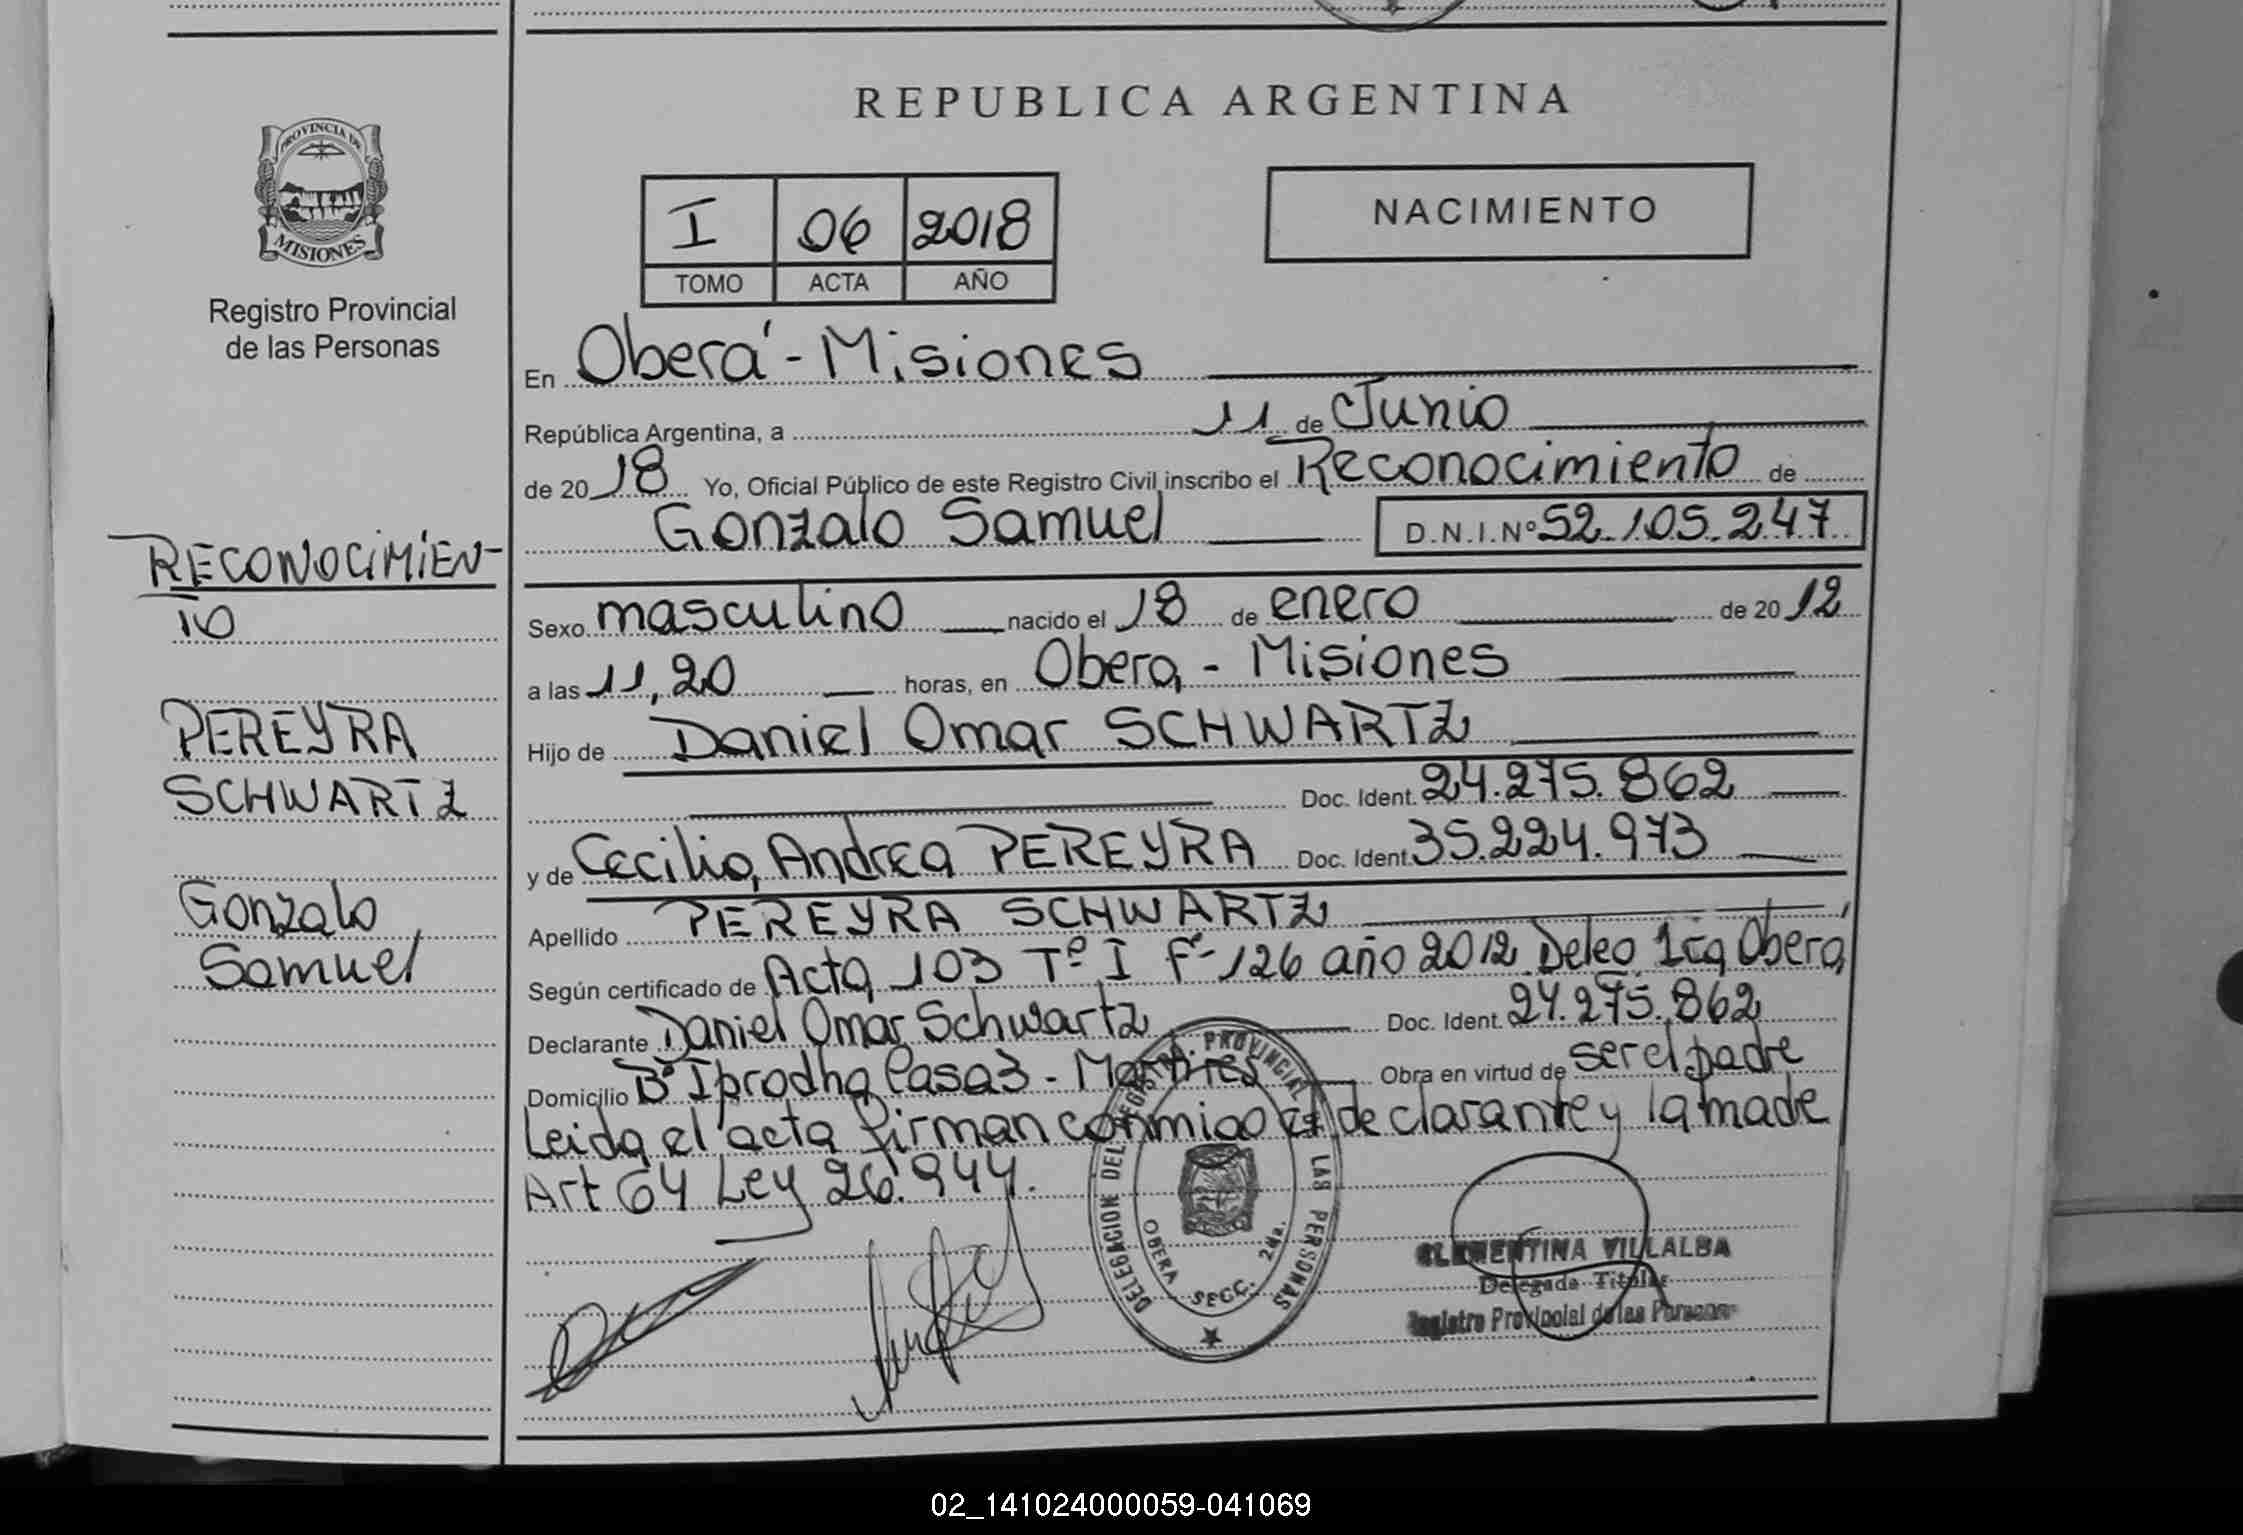 REPUBLICA ARGENTINA
PROVINCIA DE
MISIONES
Registro Provincial
de las Personas
I 06 2018
TOMO ACTA AÑO
NACIMIENTO
En Oberá - Misiones
República Argentina, a 11 de Junio
de 20 18 Yo, Oficial Público de este Registro Civil inscribo el Reconocimiento de
Gonzalo Samuel D.N.I.Nº 52.105.247
RECONOCIMIEN-
TO
PEREYRA
SCHWARTZ
Gonzalo
Samuel
Sexo masculino nacido el 18 de enero de 20 12
a las 11,20 horas, en Obera - Misiones
Hijo de Daniel Omar SCHWARTZ
Doc. Ident. 24.275.862
y de Cecilia Andrea PEREYRA Doc. Ident. 35.224.973
Apellido PEREYRA SCHWARTZ
Según certificado de Acta 103 Tº I Fº 126 año 2012 Deleg 1ra Oberá
Declarante Daniel Omar Schwartz Doc. Ident. 24.275.862
Domicilio Bº Iprodha Casa 3 - Martires Obra en virtud de ser el padre
Leida el acta firman conmigo el declarante y la made
Art 64 Ley 26.944.
DELEGACION DEL REGISTRO PROVINCIAL DE LAS PERSONAS
OBERA SECC. 2da.
CLEMENTINA VILLALBA
Delegada Titular
Registro Provincial de las Personas
02_141024000059-041069